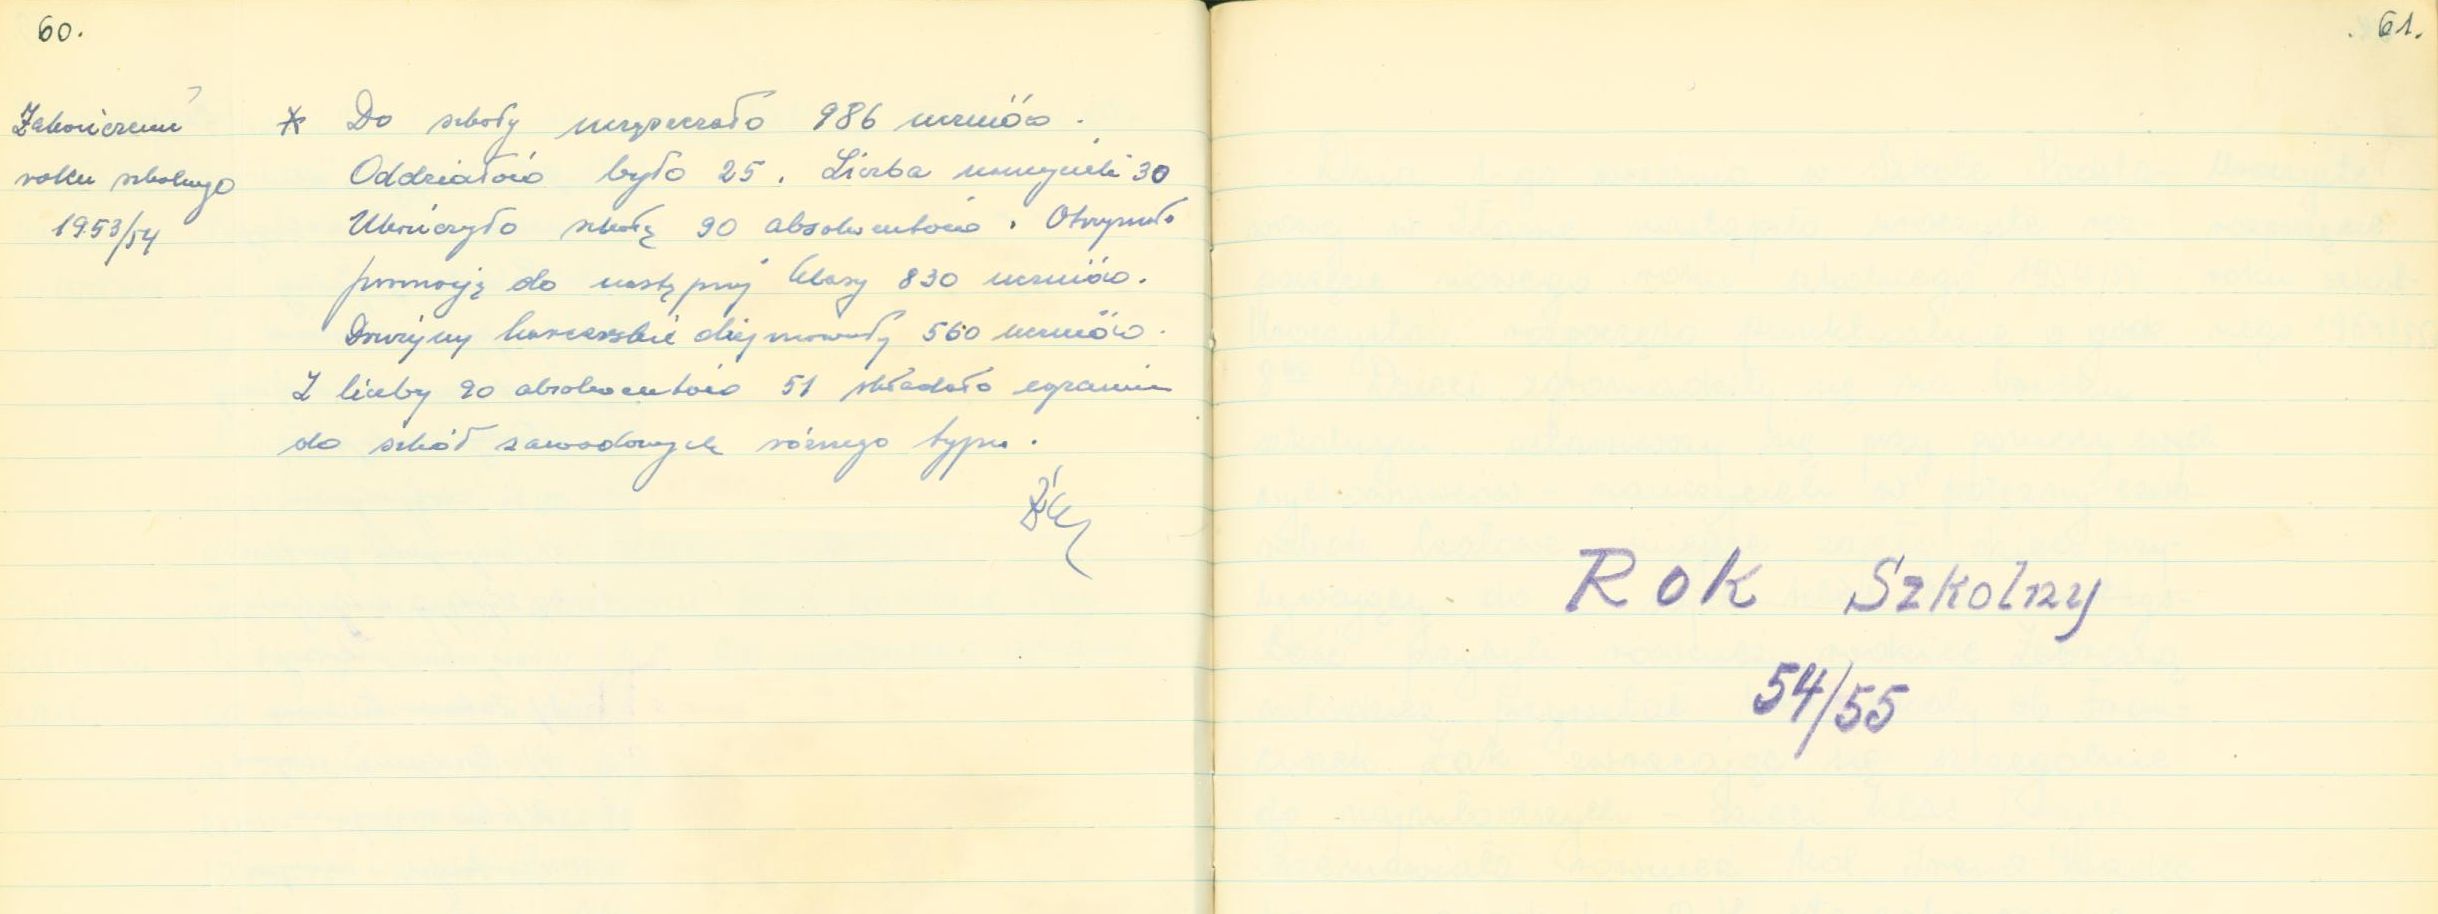 60.
Zakończenie
roku szkolnego
1953/54
* Do szkoły uczęszczało 986 uczniów.
Oddziałów było 25. Liczba nauczycieli 30
Ukończyło szkołę 90 absolwentów. Otrzymało
promocję do następnej klasy 830 uczniów.
Drużyny harcerskie obejmowały 560 uczniów.
Z liczby 90 absolwentów 51 składało egzamin
do szkół zawodowych różnego typu.
61.
Rok Szkolny
54/55